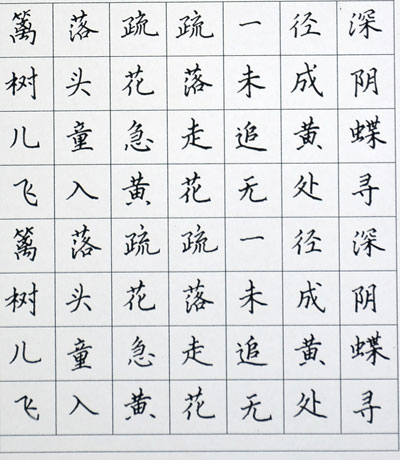 篱落疏疏一径深
树头花落未成阴
儿童急走追黄蝶
飞入黄花无处寻
篱落疏疏一径深
树头花落未成阴
儿童急走追黄蝶
飞入黄花无处寻